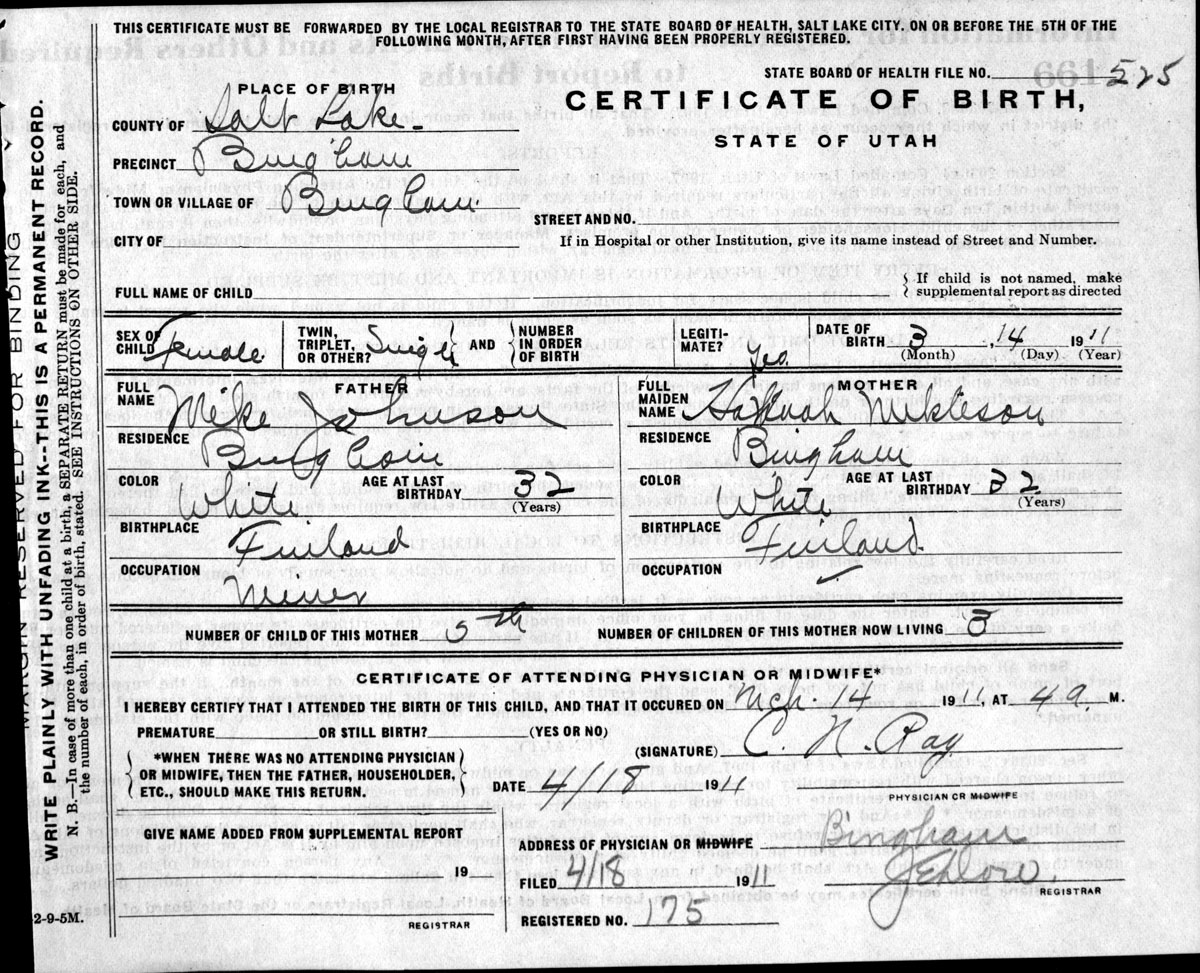 THIS CERTIFICATE MUST BE FORWARDED BY THE LOCAL REGISTRAR TO THE STATE BOARD OF HEALTH, SALT LAKE CITY, ON OR BEFORE THE 5TH OF THE
FOLLOWING MONTH, AFTER FIRST HAVING BEEN PROPERLY REGISTERED.
STATE BOARD OF HEALTH FILE NO. 525
PLACE OF BIRTH
CERTIFICATE OF BIRTH,
STATE OF UTAH
COUNTY OF Salt Lake
PRECINCT Bingham
TOWN OR VILLAGE OF Bingham
STREET AND NO.
CITY OF
If in Hospital or other Institution, give its name instead of Street and Number.
FULL NAME OF CHILD
If child is not named, make
supplemental report as directed
SEX OF CHILD Female
TWIN, TRIPLET, OR OTHER? Single
AND
NUMBER IN ORDER OF BIRTH
LEGITIMATE? Yes
DATE OF BIRTH 3 14 1911
(Month) (Day) (Year)
FATHER
FULL NAME Johnson
RESIDENCE Bingham
COLOR White
AGE AT LAST BIRTHDAY 32
(Years)
BIRTHPLACE Finland
OCCUPATION Miner
MOTHER
FULL MAIDEN NAME
RESIDENCE Bingham
COLOR White
AGE AT LAST BIRTHDAY 32
(Years)
BIRTHPLACE Finland
OCCUPATION
NUMBER OF CHILD OF THIS MOTHER 5th
NUMBER OF CHILDREN OF THIS MOTHER NOW LIVING
CERTIFICATE OF ATTENDING PHYSICIAN OR MIDWIFE*
I HEREBY CERTIFY THAT I ATTENDED THE BIRTH OF THIS CHILD, AND THAT IT OCCURED ON Mch 14 1911, AT 4 M.
PREMATURE OR STILL BIRTH? (YES OR NO)
(SIGNATURE) C. N. Ray
PHYSICIAN OR MIDWIFE
*WHEN THERE WAS NO ATTENDING PHYSICIAN
OR MIDWIFE, THEN THE FATHER, HOUSEHOLDER,
ETC., SHOULD MAKE THIS RETURN.
DATE 4/18 1911
GIVE NAME ADDED FROM SUPPLEMENTAL REPORT
19
REGISTRAR
ADDRESS OF PHYSICIAN OR MIDWIFE Bingham
FILED 4/18 1911
REGISTRAR
REGISTERED NO. 175
2-9-5M.
MARGIN RESERVED FOR BINDING
WRITE PLAINLY WITH UNFADING INK--THIS IS A PERMANENT RECORD.
N. B.—In case of more than one child at a birth, a SEPARATE RETURN must be made for each, and
the number of each, in order of birth, stated. SEE INSTRUCTIONS ON OTHER SIDE.